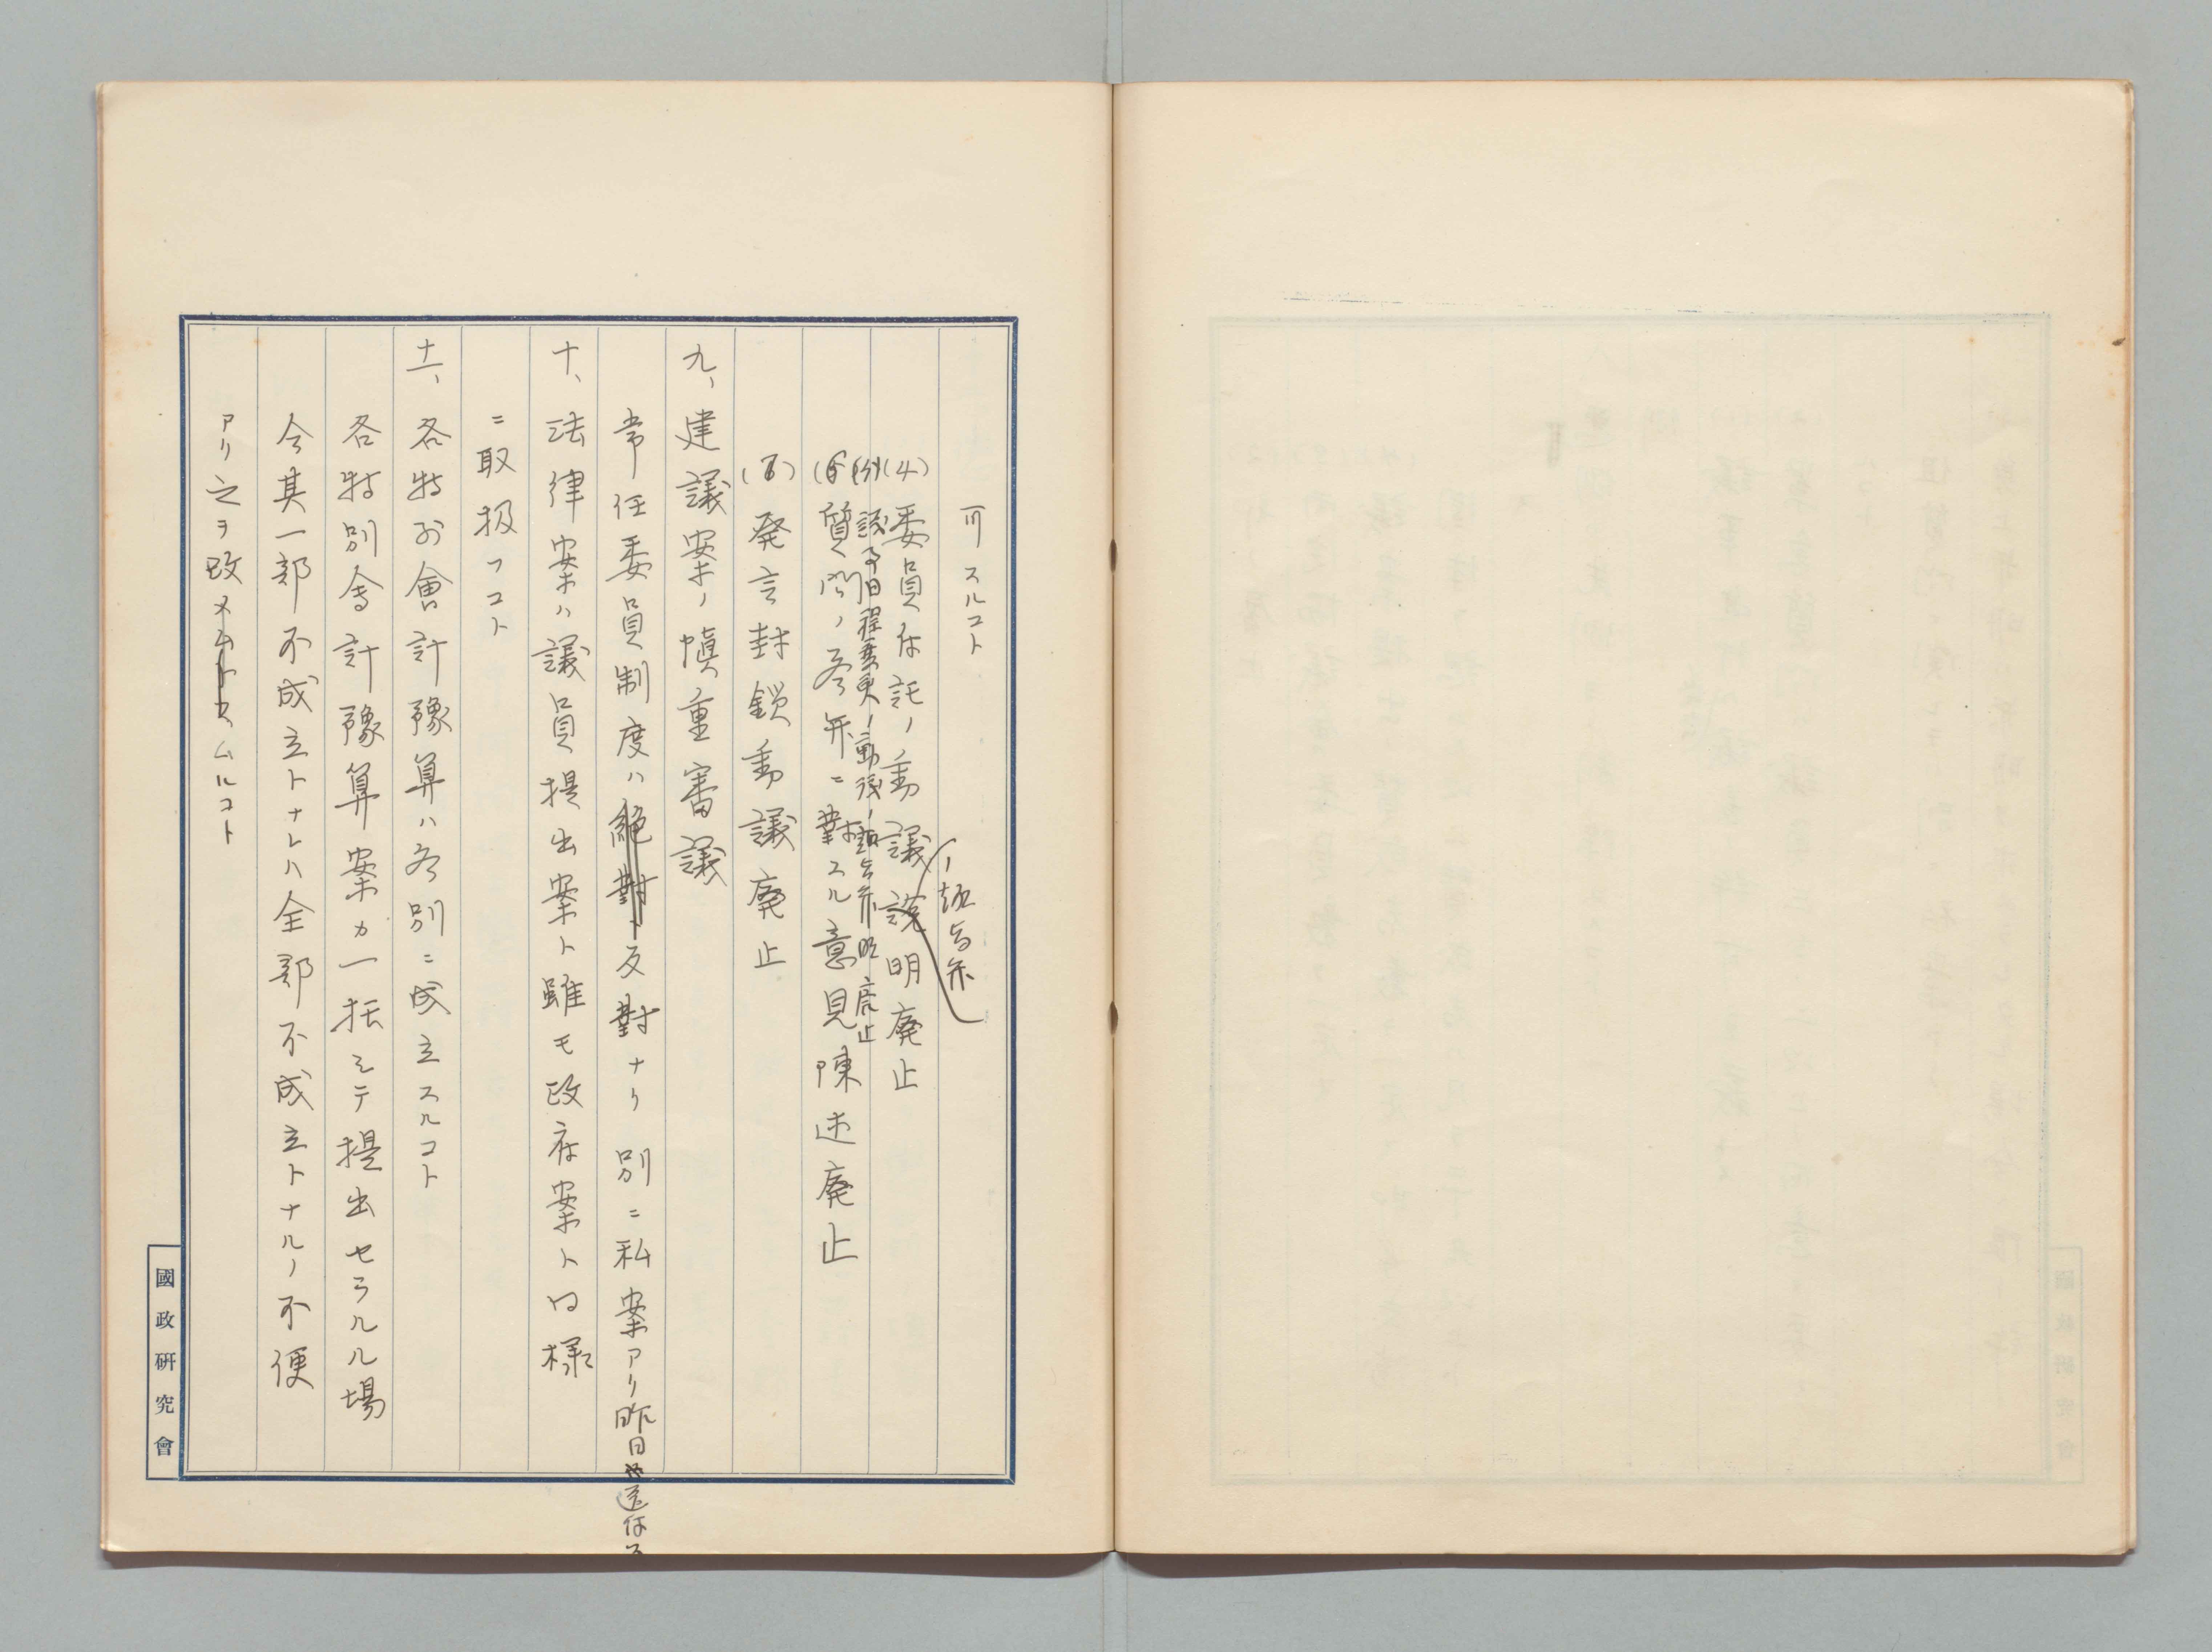 可スルコト
(4)委員付託ノ動議説明廃止
ノ趣旨弁
(5)議事日程変更ノ動議ノ趣旨弁明廃止
(6)質問ノ答弁ニ對スル意見陳述廃止
(7)発言封鎖動議廃止
九、建議案ノ慎重審議
常任委員制度ハ絶對ト反對ナリ別ニ私案アリ昨日送付ス
十、法律案ハ議員提出案ト雖モ政府案ト同様
ニ取扱フコト
十一、各特別會計豫算ハ各別ニ成立スルコト
各特別会計豫算案カ一括シテ提出セラルル場
合其一部不成立トナレハ全部不成立トナルノ不便
アリ之ヲ改メシムルコト
國政研究會